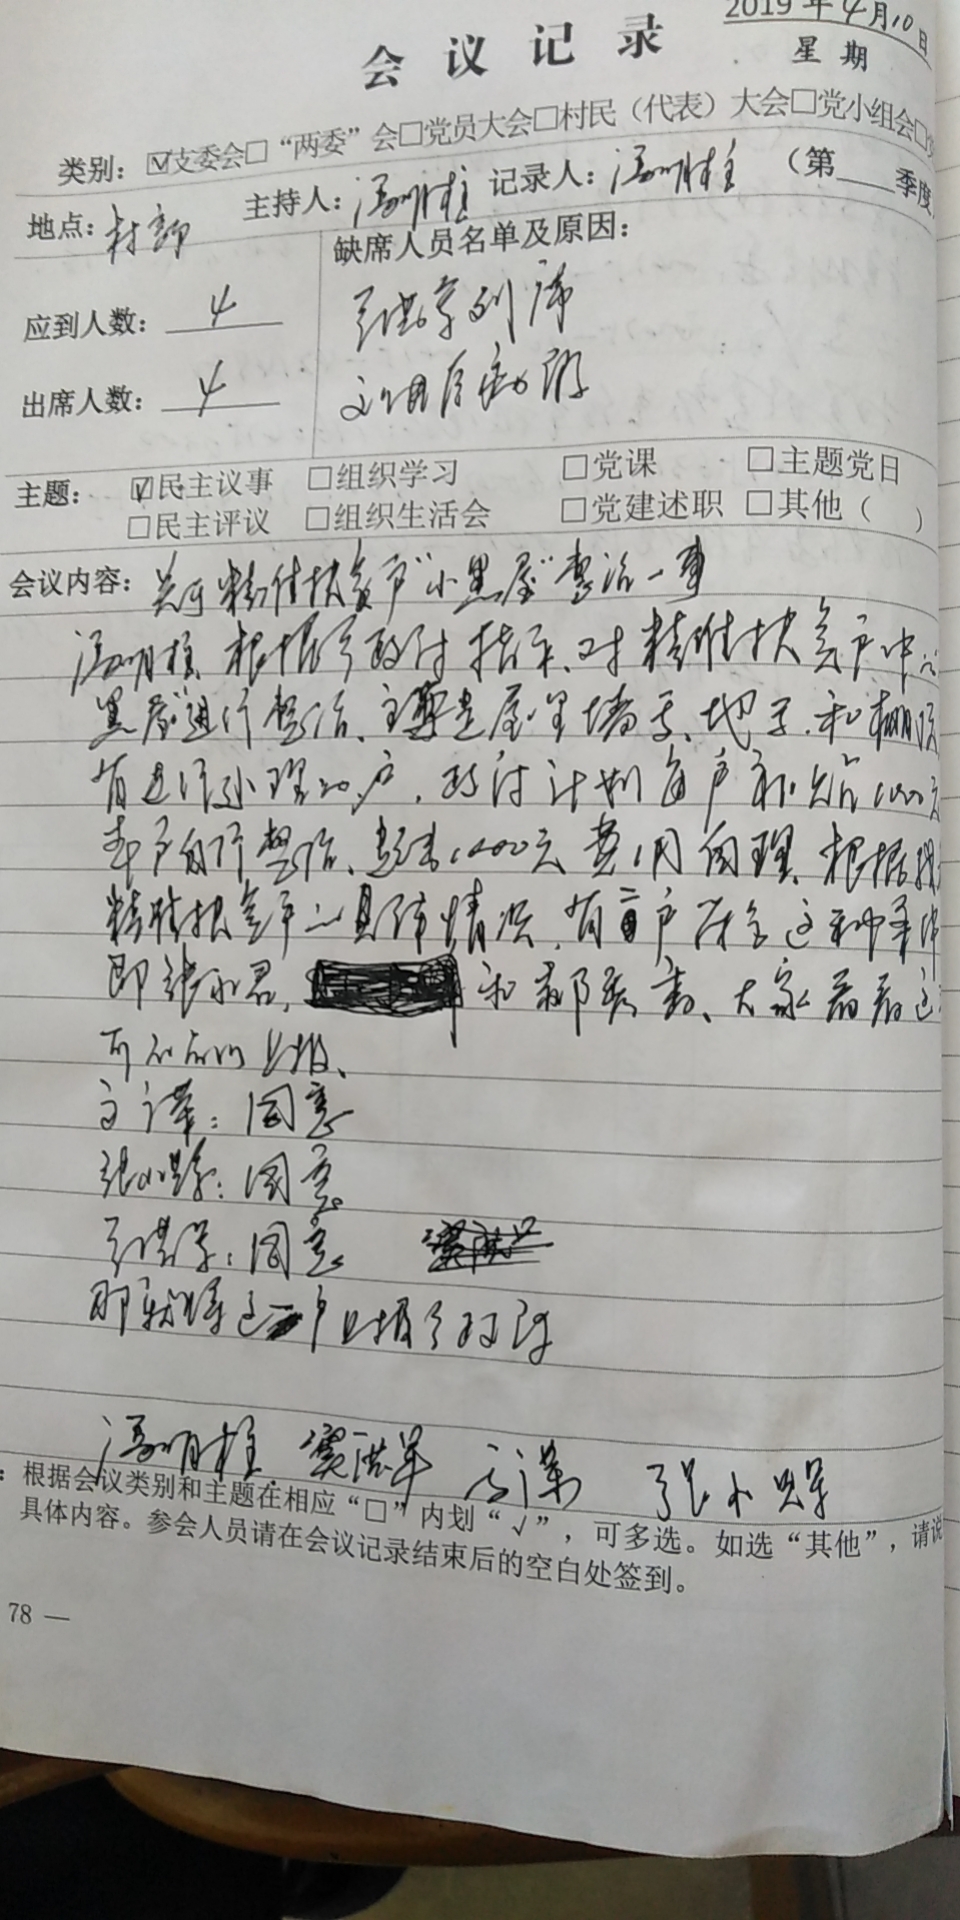 2019年4月10日
会议记录
星期
类别：☑支委会□“两委”会□党员大会□村民（代表）大会□党小组会□
地点：村部 主持人：冯明柱 记录人：冯明柱 （第____季度
缺席人员名单及原因：
应到人数：4
列席
出席人数：4
主题：☑民主议事 □组织学习 □党课 □主题党日
□民主评议 □组织生活会 □党建述职 □其他（ ）
会议内容：关于精准扶贫户“小黑屋”整治一事
冯明柱：根据乡政府指示、对精准扶贫户中“小
黑屋”进行整治、主要是屋里墙子、地子、和棚顶
有进行处理的户，政府计划每户补贴1000元
本户自行整治、超出1000元费用自理、根据我
精准扶贫户的具体情况，有 户符合这种条件
即张 君， 和 、大家看看这
可不可以上报、
：同意
张小 ：同意
：同意
那就将这 户上报乡政府
冯明柱 窦洪军 张小
：根据会议类别和主题在相应“□”内划“√”，可多选。如选“其他”，请说
具体内容。参会人员请在会议记录结束后的空白处签到。
78 —